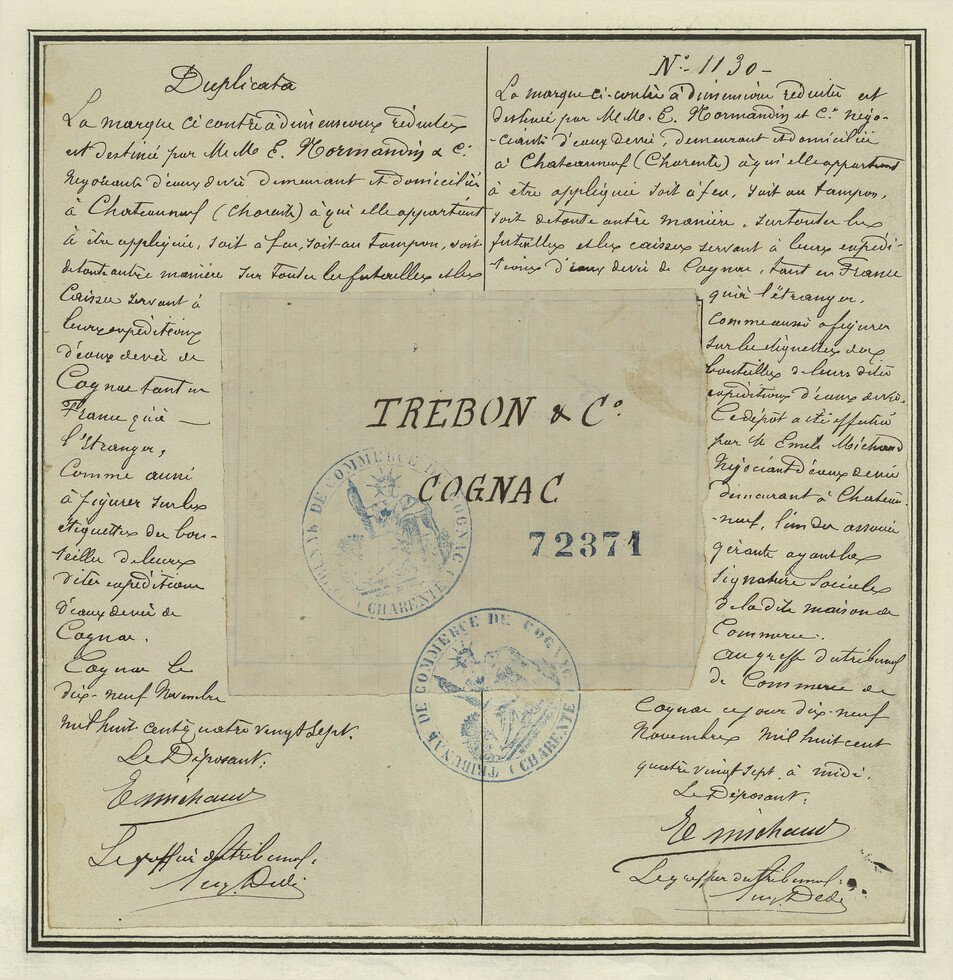 Duplicata
La marque ci contre à dimensions réduites
est destinée par M.M. E. Normandin & Cie
Négociants d'eaux de vie demeurant et domiciliés
à Chateauneuf (Charente) à qui elle appartient
à être appliquée, soit à feu, soit au tampon, soit
de toute autre manière sur toutes les futailles et les
Caisses servant à
leurs expéditions
d'eaux de vie de
Cognac tant en
France qu'à
l'Etranger,
Comme aussi
à figurer sur les
étiquettes des bou-
teilles de leurs
dites expéditions
d'eaux de vie de
Cognac.
Cognac le
dix-neuf Novembre
mil huit cent quatre vingt sept.
Le Déposant:
E Michaud
Le greffier du tribunal:
No. 1130-
La marque ci-contre à dimension réduite est
destinée par M.M. E. Normandin et Cie négo-
ciants d'eaux de vie, demeurant et domiciliés
à Chateauneuf (Charente) à qui elle appartient
à être appliquée soit à feu, soit au tampon,
soit de toute autre manière. sur toutes les
futailles et les caisses servant à leurs expédi-
tions d'eaux de vie de Cognac, tant en France
qu'à l'étranger.
Comme aussi à figurer
sur les étiquettes des
bouteilles de leurs dites
expéditions d'eaux de vie.
Ce dépôt a été effectué
par M Emile Michaud
Négociant d'eaux de vie
demeurant à Chateau-
-neuf, l'un des associés
gérants ayant les
signatures sociales
de la dite maison de
Commerce.
Au greffe du tribunal
de Commerce de
Cognac ce jour dix-neuf
Novembre mil huit cent
quatre vingt sept à midi.
Le Déposant:
E Michaud
Le greffier du tribunal:
TREBON & Co.
COGNAC
72371
TRIBUNAL DE COMMERCE DE COGNAC (CHARENTE)
TRIBUNAL DE COMMERCE DE COGNAC (CHARENTE)